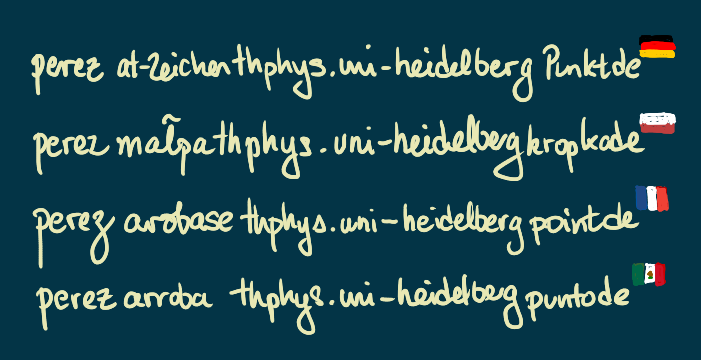 perez at-Zeichen thphys.uni-heidelberg Punkt de
perez małpa thphys.uni-heidelberg kropka de
perez arobase thphys.uni-heidelberg point de
perez arroba thphys.uni-heidelberg punto de